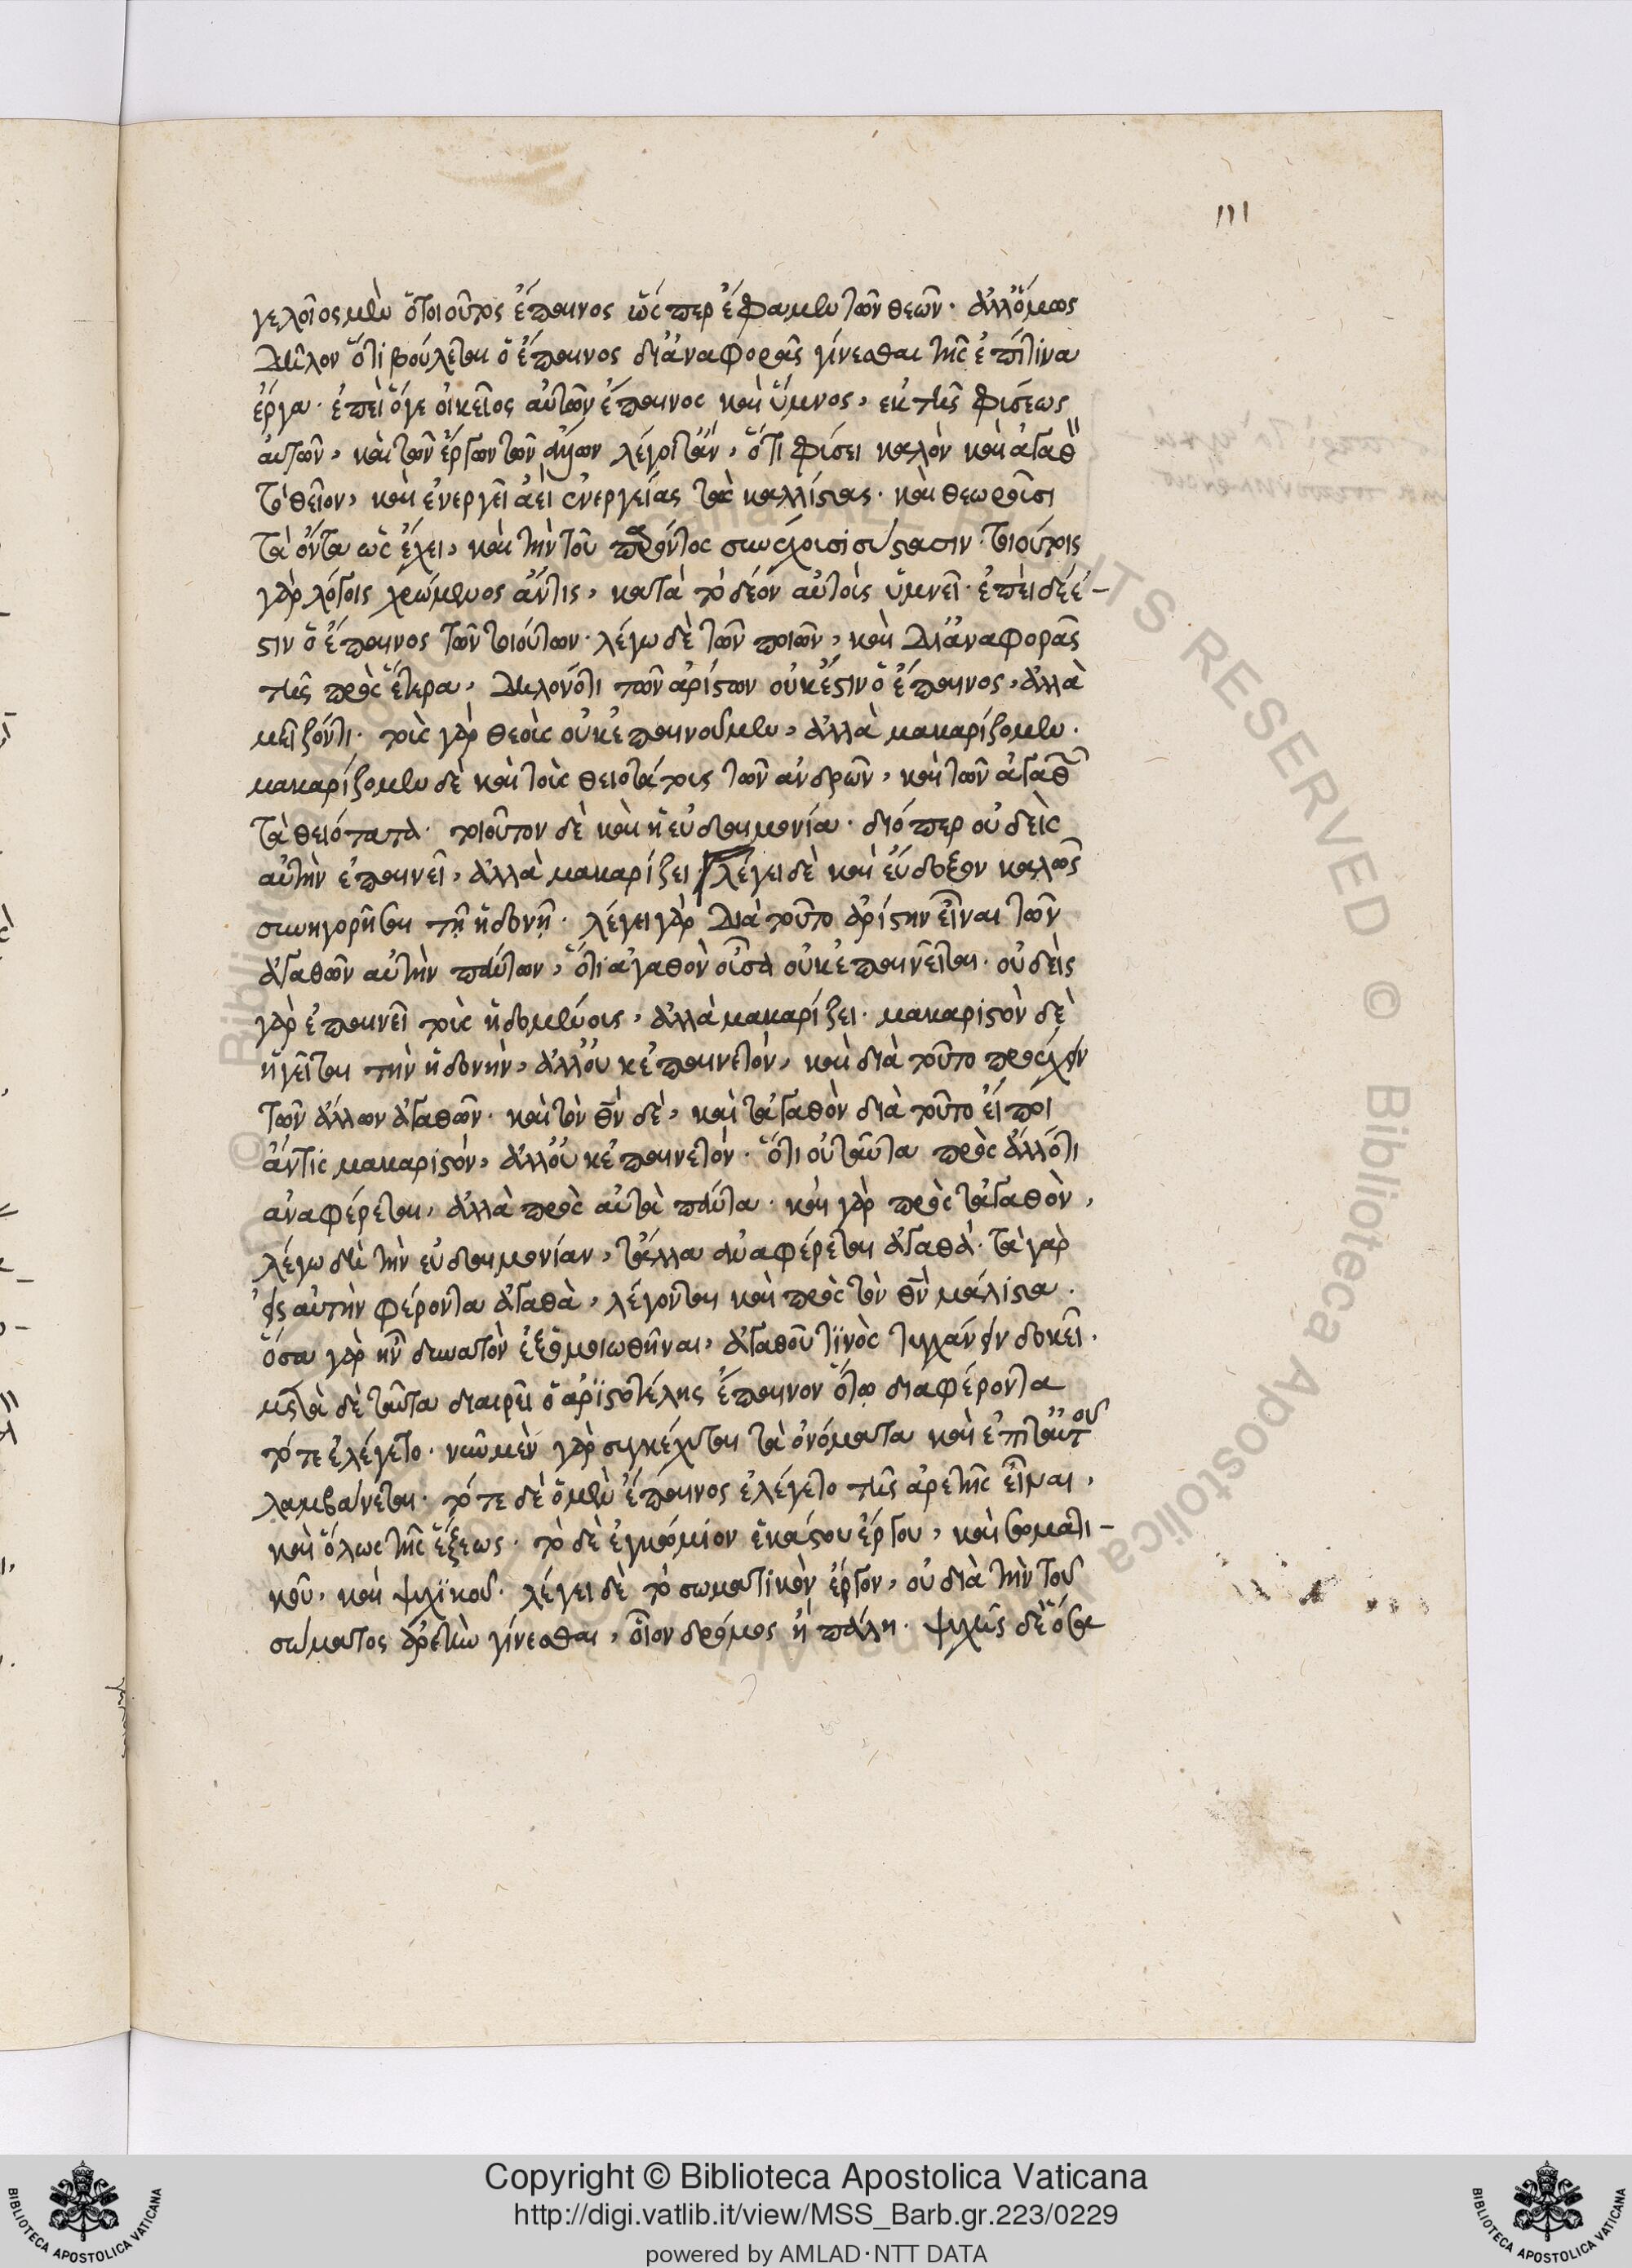 111
γελοῖος μὲν ὁ τοιοῦτος ἔπαινος ὥς περ ἔφαμεν τῶν θεῶν· ἀλλ' ὅμως
δῆλον ὅτι βούλεται ὁ ἔπαινος δι' ἀναφορᾶς γίνεσθαι τῆς ἐπί τινα
ἔργα· ἐπεὶ ὅγε οἰκεῖος αὐτῶν ἔπαινος καὶ ὕμνος, ἐκ τῆς φύσεως
αὐτῶν, καὶ τῶν ἔργων τῶν λέγοιτ' ἄν, ὅτι φύσει καλὸν καὶ ἀγαθ
τὸ θεῖον, καὶ ἐνεργεῖ ἀεὶ ἐνεργείας τὰς καλλίστας· καὶ θεωροῦσι
τὰ ὄντα ὡς ἔχει, καὶ τὴν τοῦ παντὸς συνέχουσι σύστασιν· τοιούτοις
γὰρ λόγοις χρώμενος ἄν τις, κατὰ τὸ δέον αὐτοὺς ὑμνεῖ· ἐπεὶ δὲ ἔ-
στιν ὁ ἔπαινος τῶν τοιούτων· λέγω δὲ τῶν ποιῶν, καὶ δι' ἀναφορᾶς
τῆς πρὸς ἕτερα, δηλονότι τῶν ἀρίστων οὐκ ἔστιν ὁ ἔπαινος, ἀλλὰ
μεῖζόν τι· τοὺς γὰρ θεοὺς οὐκ ἐπαινοῦμεν, ἀλλὰ μακαρίζομεν·
μακαρίζομεν δὲ καὶ τοὺς θειοτάτους τῶν ἀνδρῶν, καὶ τῶν ἀγαθ
τὰ θειότατα· τοιοῦτον δὲ καὶ ἡ εὐδαιμονία· διό περ οὐδεὶς
αὐτὴν ἐπαινεῖ, ἀλλὰ μακαρίζει· λέγει δὲ καὶ εὔδοξον καλῶς
συνηγορῆσαι τῇ ἡδονῇ· λέγει γὰρ διὰ τοῦτο ἀρίστην εἶναι τῶν
ἀγαθῶν αὐτὴν πάντων, ὅτι ἀγαθὸν οὖσα οὐκ ἐπαινεῖται· οὐδεὶς
γὰρ ἐπαινεῖ τοὺς ἡδομένους, ἀλλὰ μακαρίζει· μακαριστὸν δὲ
ἡγεῖται τὴν ἡδονὴν, ἀλλ' οὐκ ἐπαινετὸν, καὶ διὰ τοῦτο προέχειν
τῶν ἄλλων ἀγαθῶν· καὶ τὸν θν δὲ, καὶ τἀγαθὸν διὰ τοῦτο εἴποι
ἄν τις μακαριστόν, ἀλλ' οὐκ ἐπαινετόν· ὅτι οὐ ταῦτα πρὸς ἄλλό τι
ἀναφέρεται, ἀλλὰ πρὸς αὐτὰ πάντα· καὶ γὰρ πρὸς τἀγαθὸν,
λέγω δὴ τὴν εὐδαιμονίαν, τἄλλα ἀναφέρεται ἀγαθά· τὰ γὰρ
εἰς αὐτὴν φέροντα ἀγαθὰ, λέγονται καὶ πρὸς τὸν θν μάλιστα·
ὅσα γὰρ ἦν δυνατὸν ἐξομοιωθῆναι, ἀγαθοῦ τινὸς τυγχάνειν δοκεῖ·
μετὰ δὲ ταῦτα διαιρεῖ ὁ ἀριστοτέλης ἔπαινον ὅτῳ διαφέροντα
τότε ἐλέγετο· νῦν μὲν γὰρ συγκέχυται τὰ ὀνόματα καὶ ἐπὶ ταὐτοῦ
λαμβάνεται· τότε δὲ ὁ μὲν ἔπαινος ἐλέγετο τῆς ἀρετῆς εἶναι,
καὶ ὅλως τῆς ἕξεως· τὸ δὲ ἐγκώμιον ἑκάστου ἔργου, καὶ σωματι-
κοῦ, καὶ ψυχικοῦ· λέγει δὲ τὸ σωματικὸν ἔργον, οὐ διὰ τὴν τοῦ
σώματος ἀρετὴν γίνεσθαι, οἷον δρόμος ἢ πάλη· ψυχῆς δὲ ὅσα
Copyright © Biblioteca Apostolica Vaticana
http://digi.vatlib.it/view/MSS_Barb.gr.223/0229
powered by AMLAD·NTT DATA